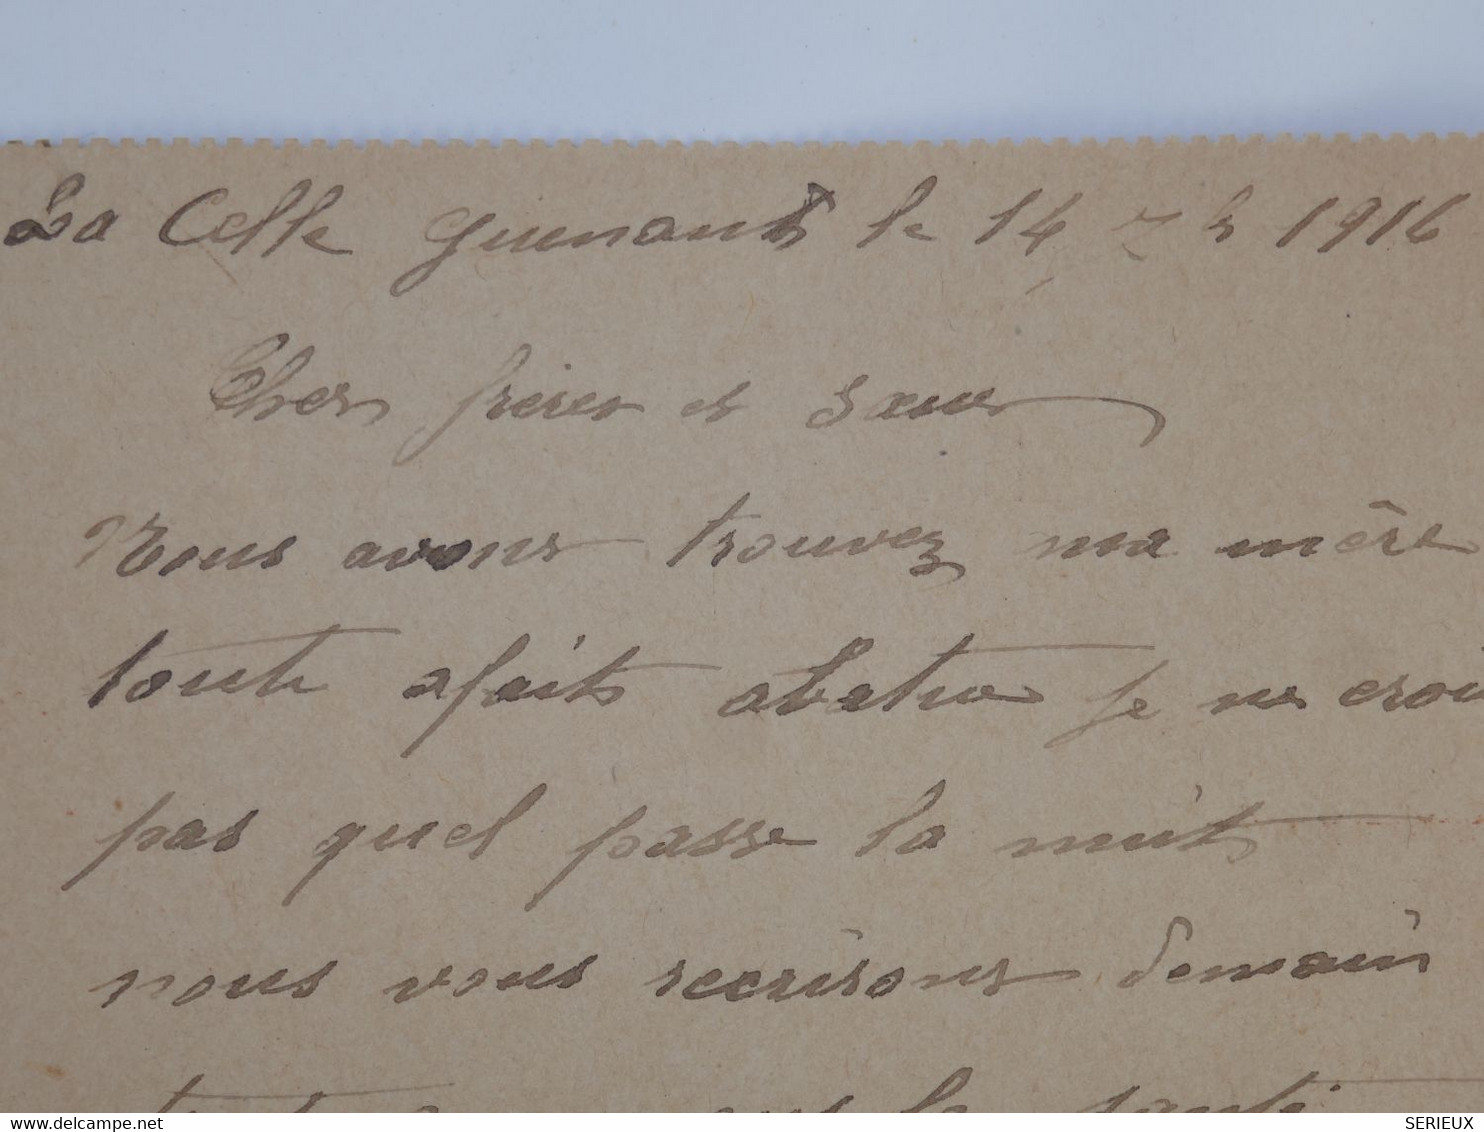 La Celle Guenant le 14 1916
Chers frères et Sœur
Nous avons trouvez ma mère
toute afait abatue Je ne croi
pas quel passe la nuit
nous vous recrirons demain
la santé
www.delcampe.net
SERIEUX